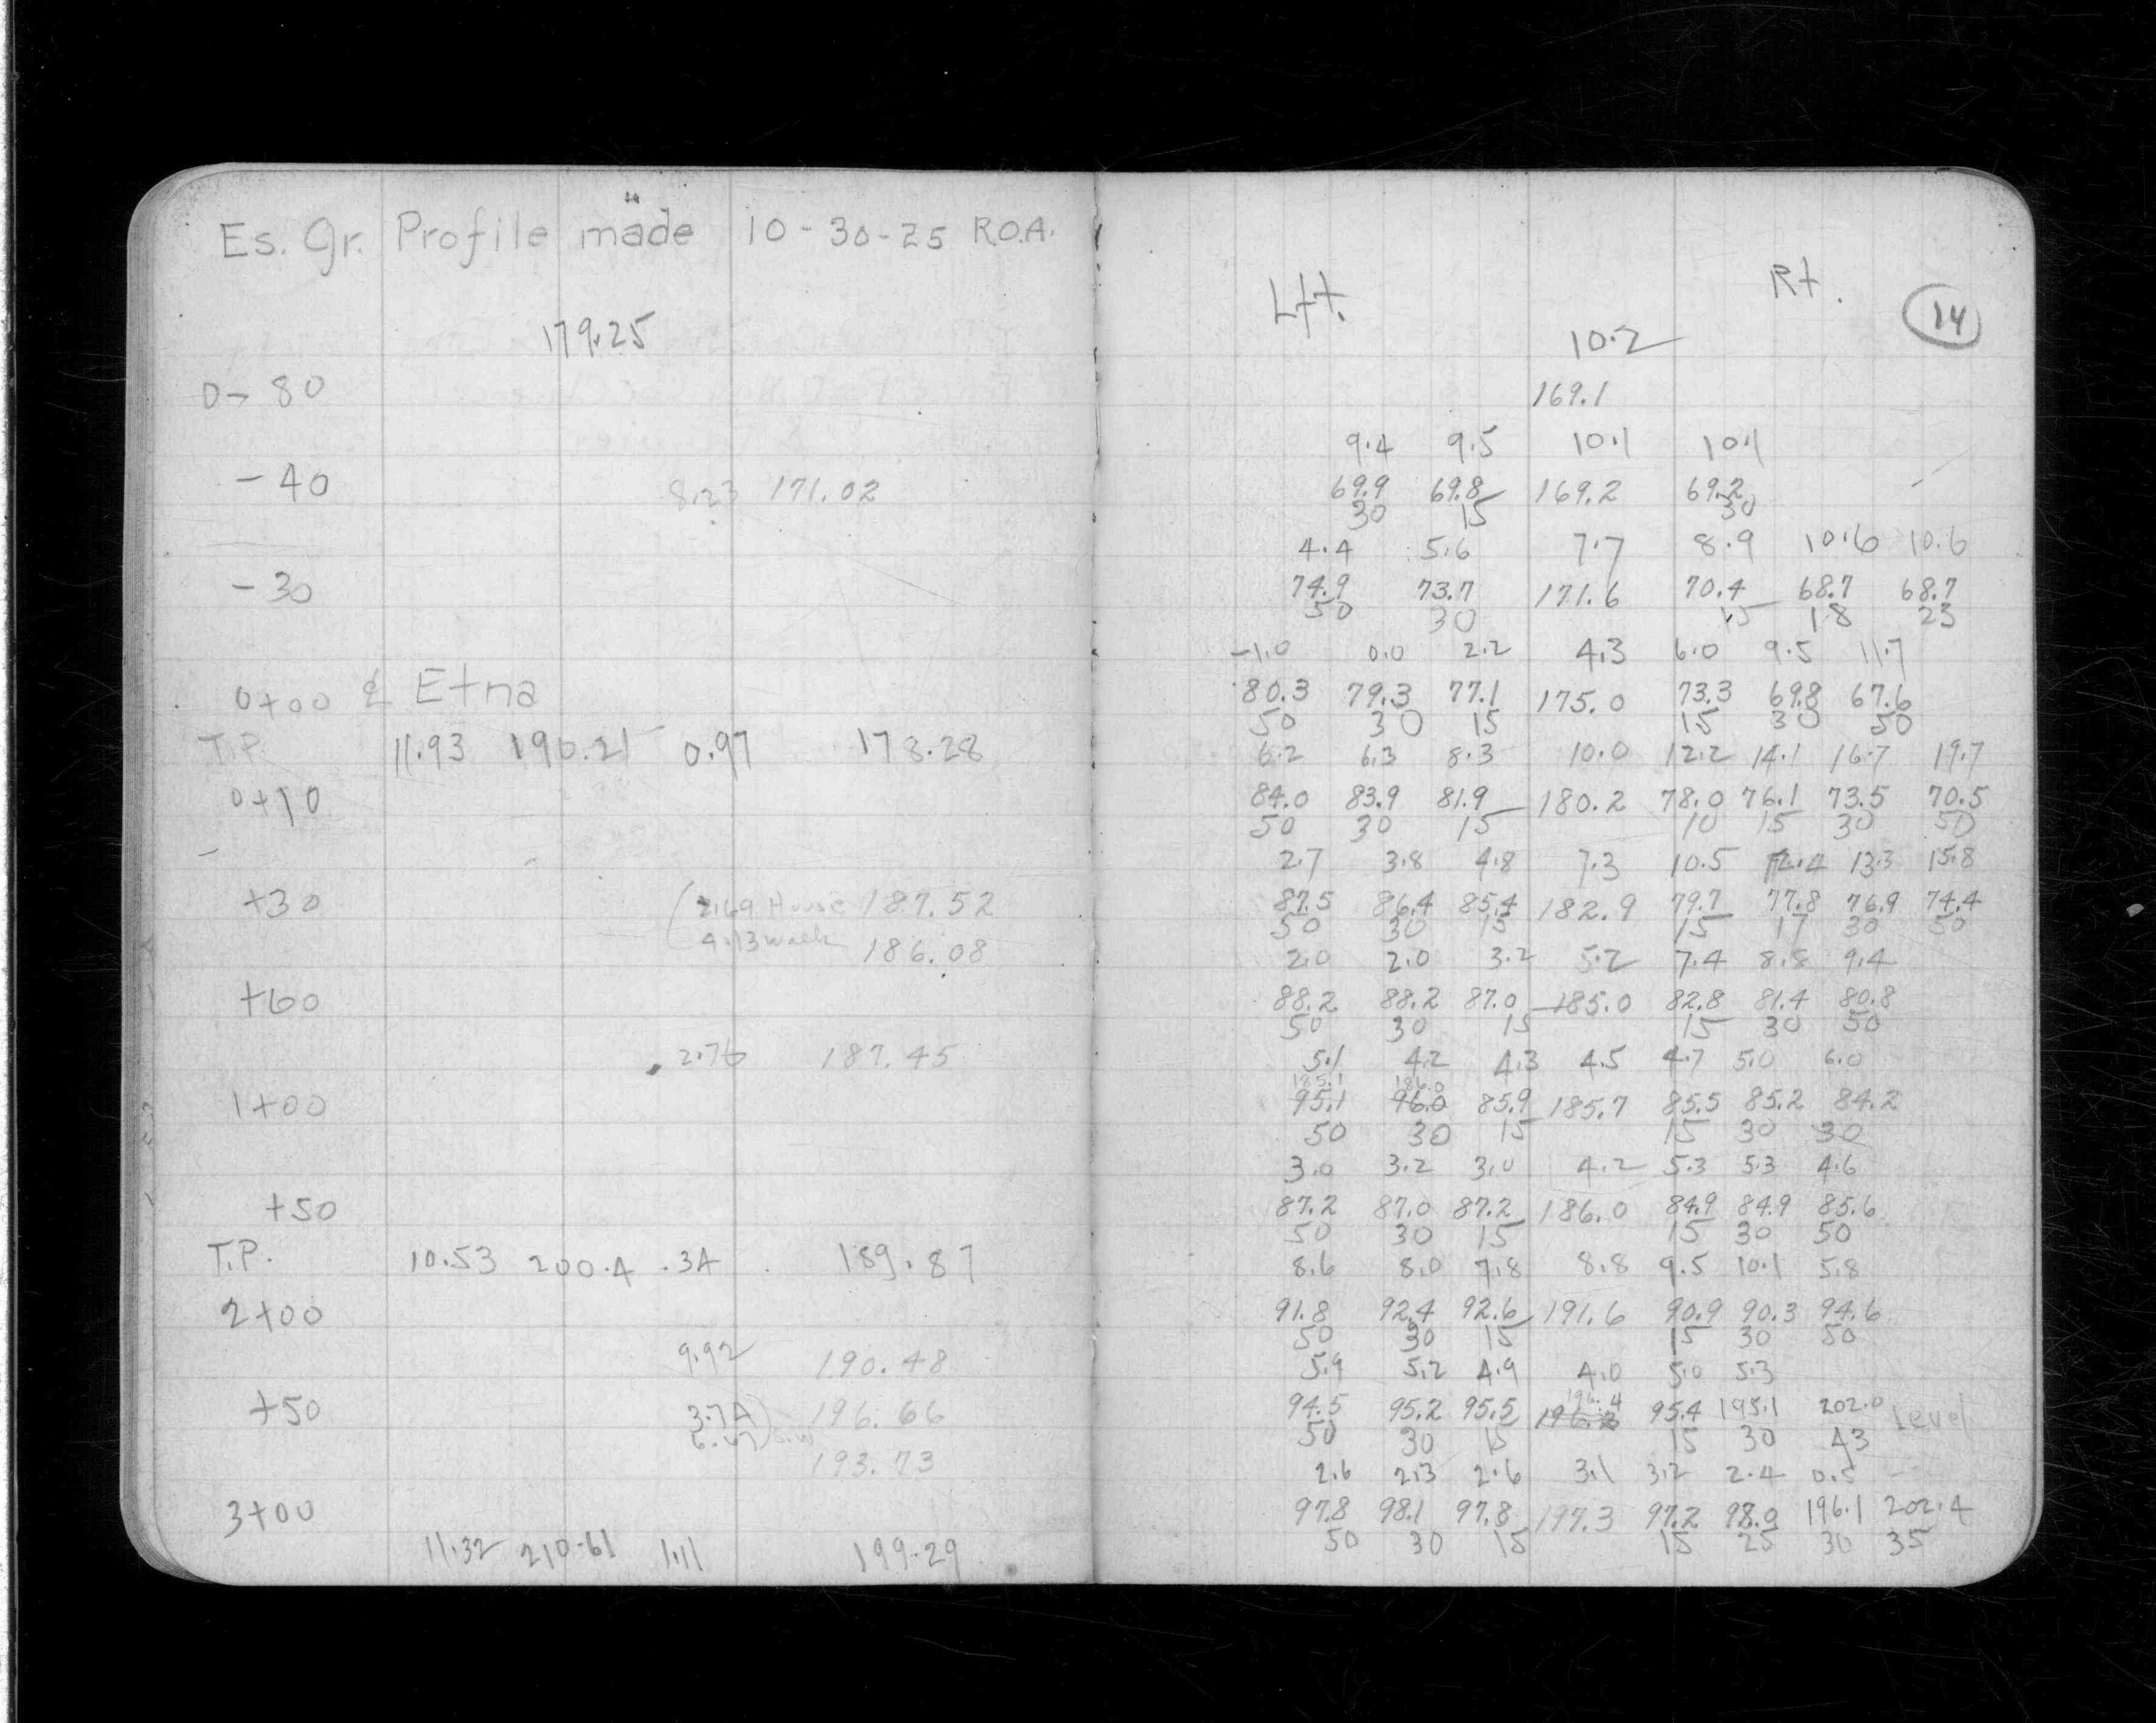 Es. Gr. Profile made 10-30-25 R.O.A.
179.25
0-80
-40 8.23 171.02
-30
0+00 ¢ Etna
T.P. 11.93 190.21 0.97 178.28
0+10
+30 (2.69 House 187.52
4.13 walk 186.08
+60
2.76 187.45
1+00
+50
T.P. 10.53 200.4 .34 189.87
2+00
9.92 190.48
+50 3.74 196.66
193.73
3+00
11.32 210.61 1.11 199.29
Lft. Rt. 14
10.2
169.1
9.4 9.5 10.1 10.1
69.9 69.8 169.2 69.2
30 15 30
4.4 5.6 7.7 8.9 10.6 10.6
74.9 73.7 171.6 70.4 68.7 68.7
50 30 15 18 23
-1.0 0.0 2.2 4.3 6.0 9.5 11.7
80.3 79.3 77.1 175.0 73.3 69.8 67.6
50 30 15 15 30 50
6.2 6.3 8.3 10.0 12.2 14.1 16.7 19.7
84.0 83.9 81.9 180.2 78.0 76.1 73.5 70.5
50 30 15 10 15 30 50
2.7 3.8 4.8 7.3 10.5 12.4 13.3 15.8
87.5 86.4 85.4 182.9 79.7 77.8 76.9 74.4
50 30 15 15 17 30 50
2.0 2.0 3.2 5.2 7.4 8.8 9.4
88.2 88.2 87.0 185.0 82.8 81.4 80.8
50 30 15 15 30 50
5.1 4.2 4.3 4.5 4.7 5.0 6.0
185.1 186.0
95.1 96.0 85.9 185.7 85.5 85.2 84.2
50 30 15 15 30 30
3.0 3.2 3.0 4.2 5.3 5.3 4.6
87.2 87.0 87.2 186.0 84.9 84.9 85.6
50 30 15 15 30 50
8.6 8.0 7.8 8.8 9.5 10.1 5.8
91.8 92.4 92.6 191.6 90.9 90.3 94.6
50 30 15 15 30 50
5.9 5.2 4.9 4.0 5.0 5.3
196.4
94.5 95.2 95.5 95.4 195.1 202.0 Level
50 30 15 15 30 43
2.6 2.3 2.6 3.1 3.2 2.4 0.5
97.8 98.1 97.8 197.3 97.2 98.0 196.1 202.4
50 30 15 15 25 30 35